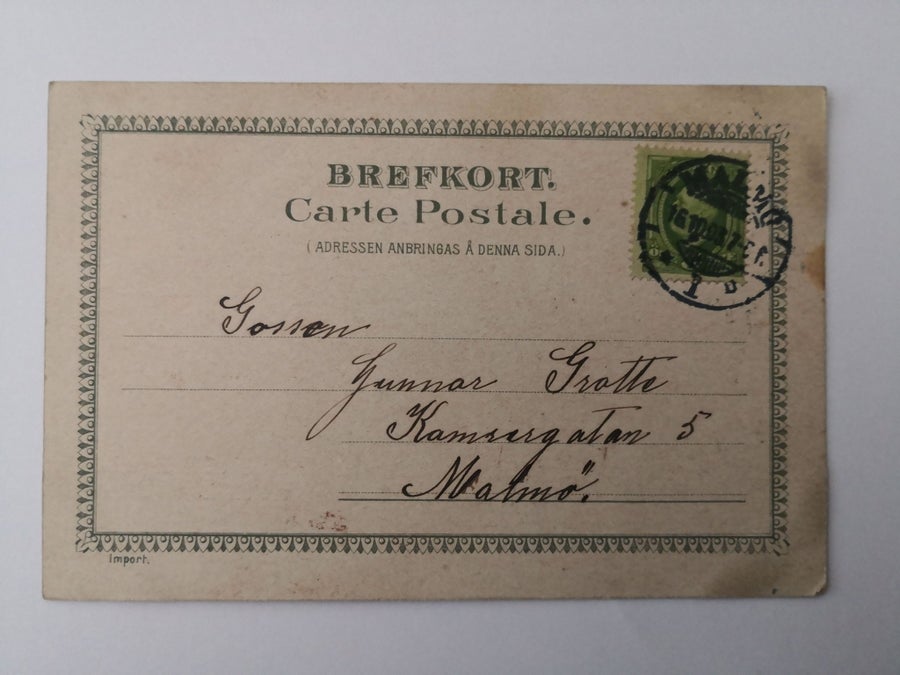 BREFKORT.
Carte Postale.
(ADRESSEN ANBRINGAS Å DENNA SIDA.)
MALMÖ
1
Gossen
Gunnar Grotte
Kamrergatan 5
Malmö.
Import.